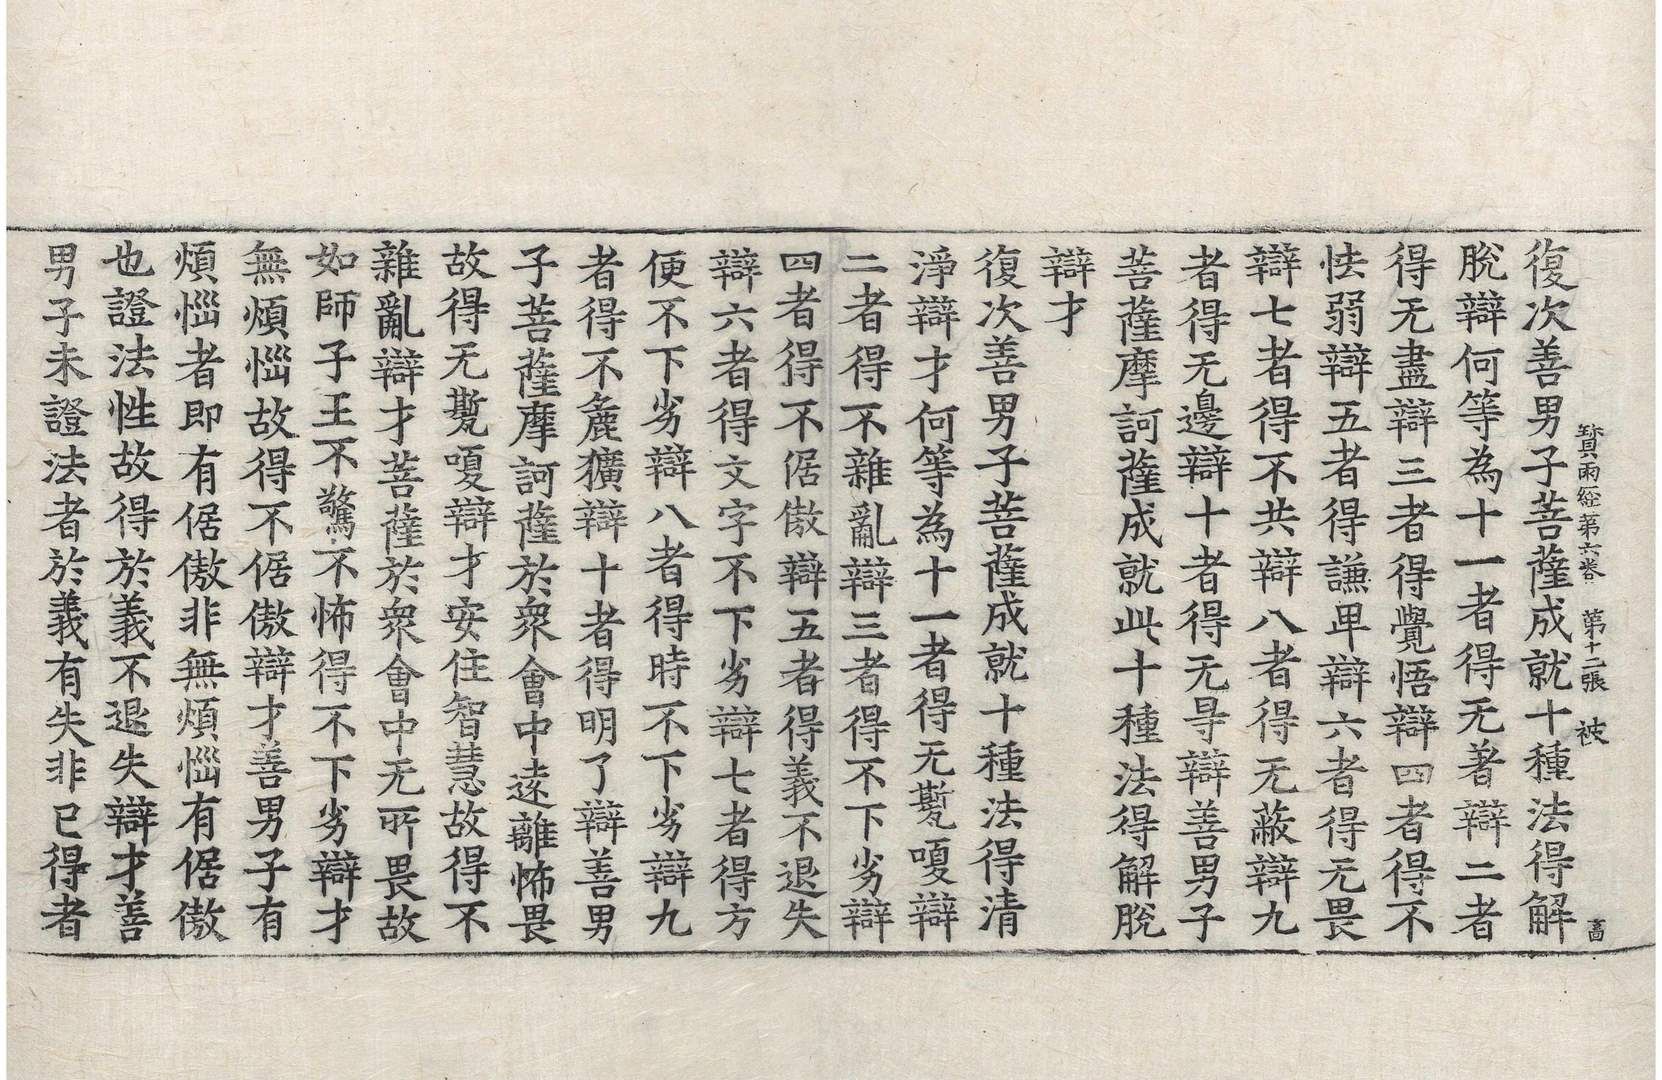 寶雨經第六卷 第十二張 被 𤲿
復次善男子菩薩成就十種法得解
脫辯何等為十一者得无著辯二者
得无盡辯三者得覺悟辯四者得不
怯弱辯五者得謙卑辯六者得无畏
辯七者得不共辯八者得无蔽辯九
者得无邊辯十者得无㝵辯善男子
菩薩摩訶薩成就此十種法得解脫
辯才
復次善男子菩薩成就十種法得清
淨辯才何等為十一者得无㽄嗄辯
二者得不雜亂辯三者得不下劣辯
四者得不倨傲辯五者得義不退失
辯六者得文字不下劣辯七者得方
便不下劣辯八者得時不下劣辯九
者得不麁獷辯十者得明了辯善男
子菩薩摩訶薩於衆會中遠離怖畏
故得无㽄嗄辯才安住智慧故得不
雜亂辯才菩薩於衆會中无所畏故
如師子王不驚不怖得不下劣辯才
無煩惱故得不倨傲辯才善男子有
煩惱者即有倨傲非無煩惱有倨傲
也證法性故得於義不退失辯才善
男子未證法者於義有失非已得者